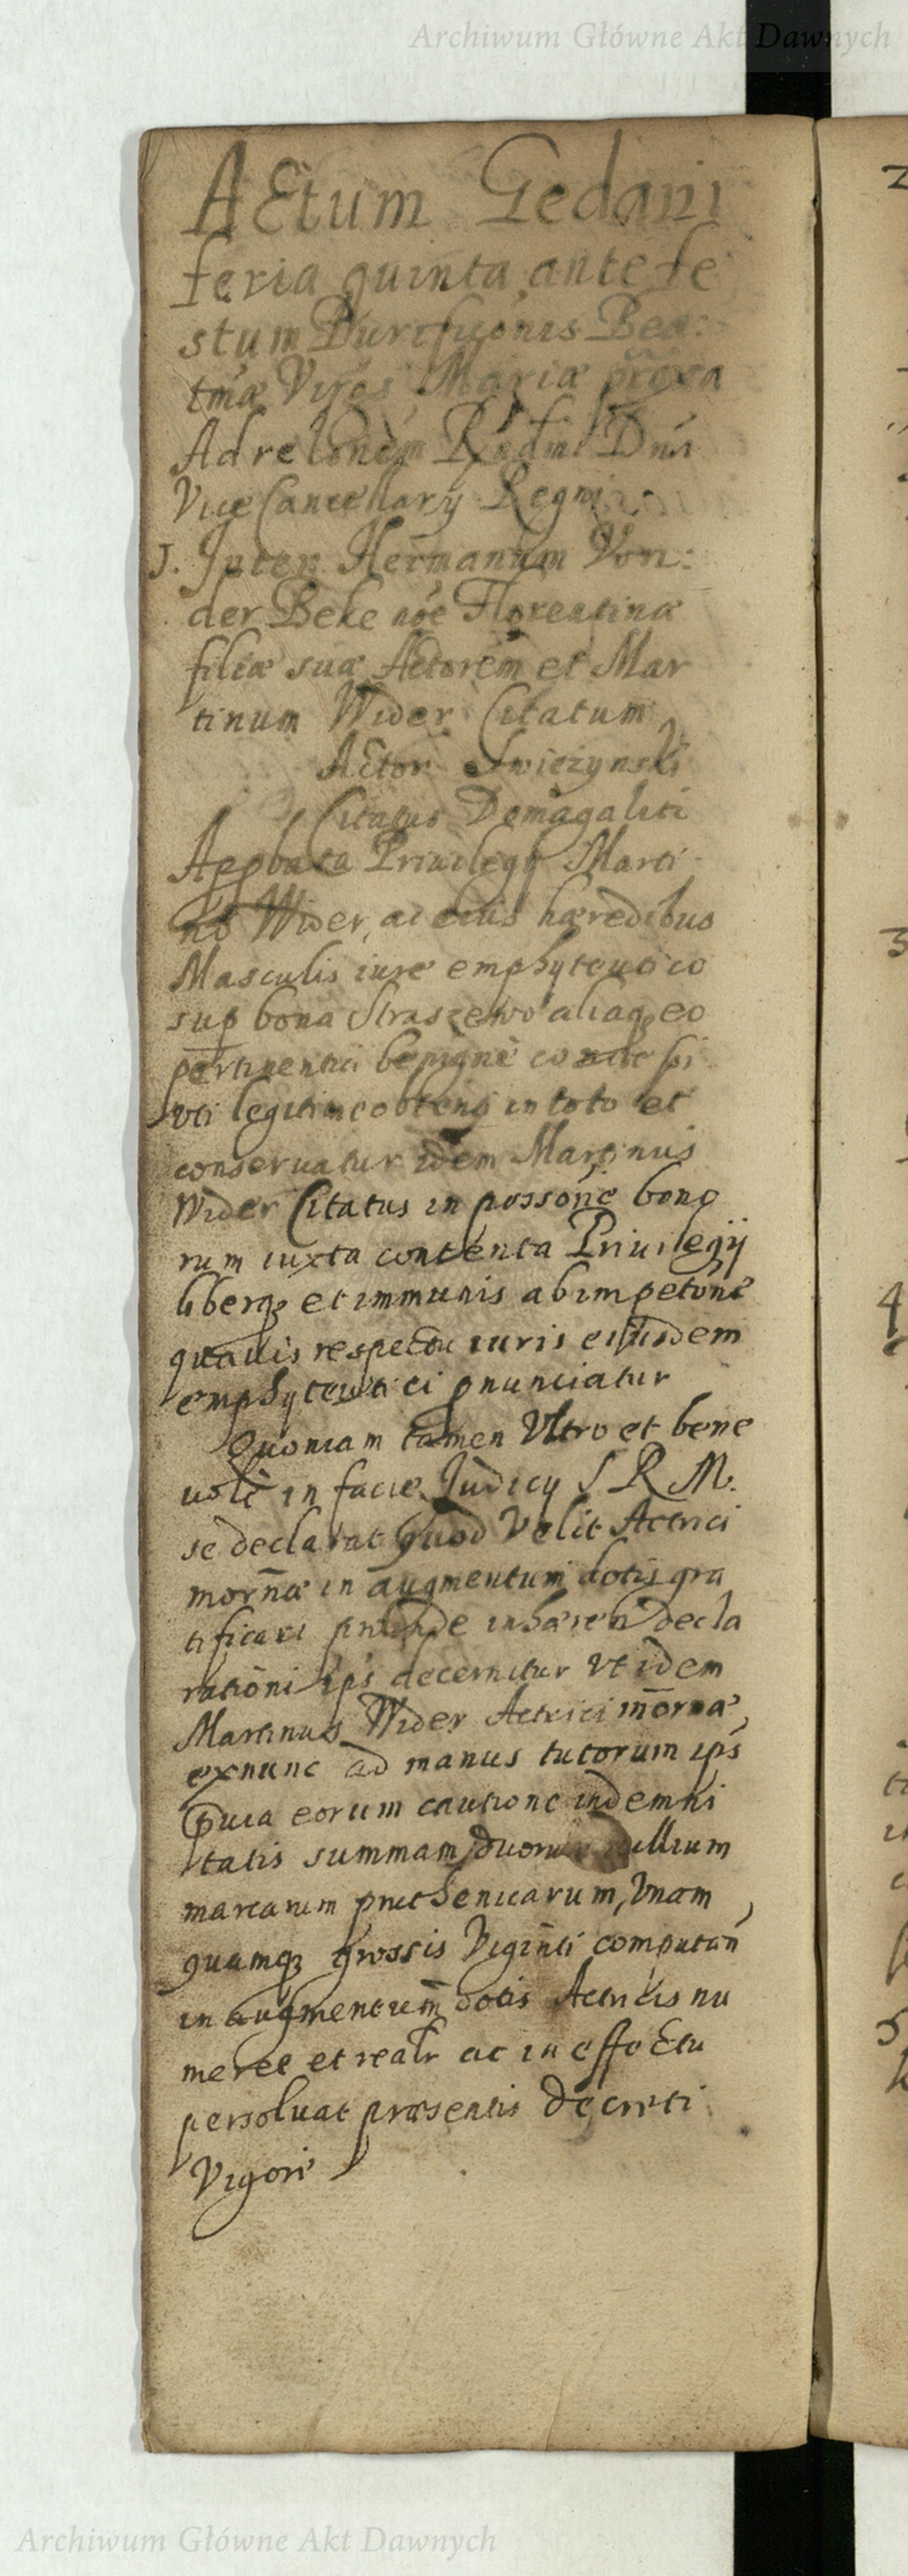 Archiwum Główne Akt Dawnych
Actum Gedani
feria quinta ante fe
stum Purifiçonis Bea:
tmæ Virgs Mariæ prõxa
Ad relõnem Rndmi Dni
Vice Cancellarij Regni
1. Inter Hermanum Von:
der Beke nõe Florentinæ
filiæ suæ Actorem et Mar
tinum Wider Citatum
Actor Swiezynski
Citatus Domagalicz
Approbata Priuilegij Marti
no Wider, ac eius hæredibus
Masculis iure emphyteutico
sup bona Straszewo aliaq eo
pertinentia benigne
uti legitime obtenti in toto et
conseruatur idem Martinus
Wider Citatus in possõne bono
rum iuxta contenta Priuilegij
liberq et immunis ab impetõne
quauis respectu iuris eiusdem
emphyteutici pnunciatur
Quoniam tamen Vltro et bene
uole in facie Judicij S R M.
se declarat quod Velit Actrici
mornæ in augmentum dotis gra
tificari proinde inhæren decla
rationi ips decernitur Vt idem
Martinus Wider Actrici mornæ,
exnunc ad manus tutorum ips
præuia eorum cautione indemni
tatis summam duorum millium
marcarum pruthenicarum, Vnam
quamq grossis Viginti computan
in augmentum dotis Actricis nu
meret et realr ac in effectu
persoluat præsentis decreti
Vigore
2
3
4
5
Archiwum Główne Akt Dawnych